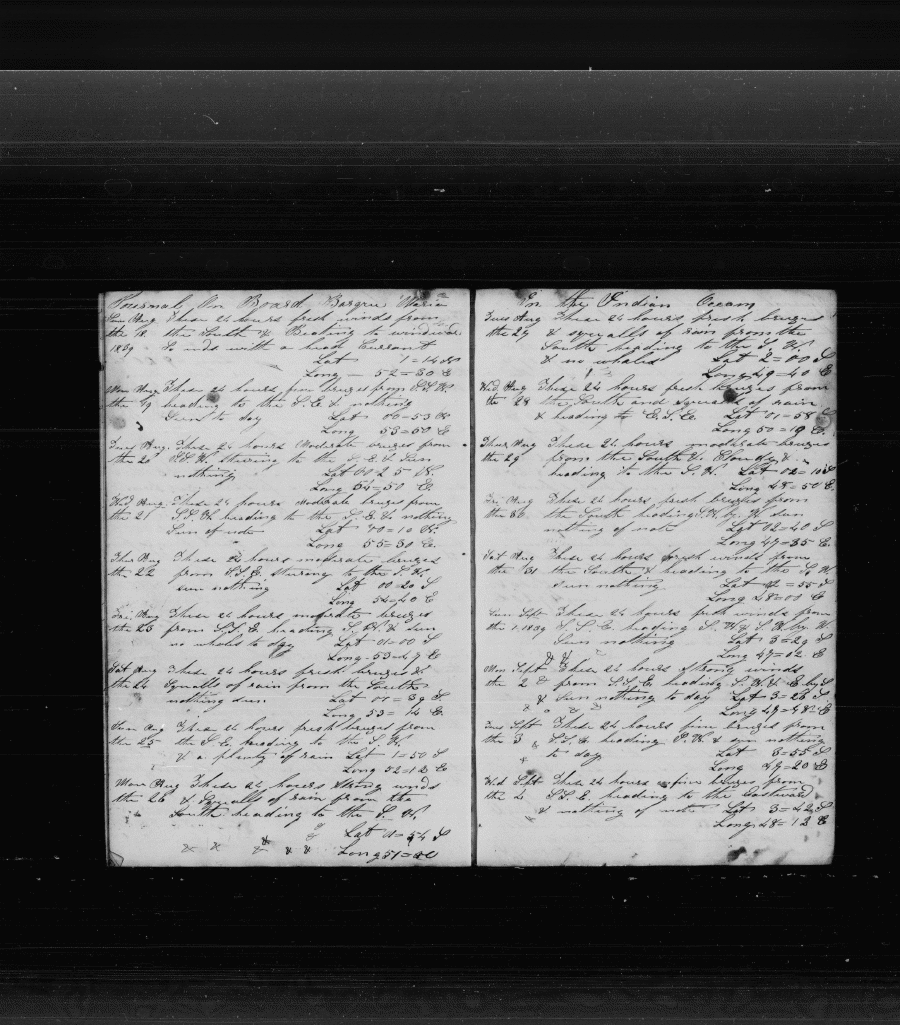 Journal, On Board, Barque Maria
Sun Aug These 24 hours fresh winds from
the 18 the South & Beating to windward
1839 So ends with a head Current
Lat 1=14 N
Long - 52=30 E
Mon Aug These 24 hours fine breezes from S.S.W.
the 19 heading to the S.E & nothing
Seen to day Lat 00=53 N
Long 53=50 E
Tues Aug These 24 hours Moderate breezes from
the 20 S.S.W. steering to the S.E & Seen
nothing Lat 00 25 N
Long 54=50 E.
Wed Aug These 24 hours moderate breezes from
the 21 S.S.W heading to the S.E & nothing
Seen of note Lat 00=10 N.
Long 55=30 E.
Thur Aug These 24 hours moderate breezes
the 22 from S.S.E. steering to the S.W.
seen nothing Lat 00=20 S
Long 54=40 E
Fri. Aug These 24 hours moderate breezes
the 23 from S.S.E heading S.W. & seen
no whales to day Lat 01=00 S
Long - 53=47 E
Sat Aug These 24 hours fresh breezes &
the 24 Squalls of rain from the South
nothing seen Lat 01=39 S.
Long 53= 14 E.
Sun Aug These 24 hours fresh breezes from
the 25 the S.E. heading to the S.W.
& a plenty of rain Lat 1=50 S
Long 52=12 E
Mon Aug These 24 hours Strong winds
the 26 & Squalls of rain from the
South heading to the S. W.
Lat 1=54 S
Long 51=
In the Indian Ocean
Tues Aug These 24 hours fresh breezes
the 27 & squalls of rain from the
South heading to the S.W
& no whales Lat 2=00 S
Long 49=40 E
Wed. Aug These 24 hours fresh breezes from
the 28 the South and squalls of rain
& heading E.S.E. Lat 01=58 S
Long 50=19 E
Thur Aug These 24 hours moderate breezes
the 29 from the South & Cloudy &
heading to the S.W Lat 02= S
Long 48=50 E.
Fri Aug These 24 hours fresh breezes from
the 30. the South heading S.W. by W seen
nothing of note Lat 02=40 S
Long 47=35 E.
Sat Aug These 24 hours fresh winds from
the 31 the South & heading to the S. W
seen nothing Lat 2=55 S
Long 48=00 E
Sun Sept These 24 hours fresh winds from
the 1. 1839 S.S.E heading S.W & S.W by W.
Seen nothing Lat 3=29 S
Long 47=02 E
Mon Sept These 24 hours strong winds
the 2 from S.S.E heading S.W & E by S
& seen nothing to day Lat 3=26 S
Long 47=48 E
Tues Sept These 24 hours fine breezes from
the 3 S.S.E heading S.W & seen nothing
to day Lat 3=55 S
Long 47=20 E
Wed Sept These 24 hours fine breezes from
the 4 S.S.E. heading to the Eastward
& nothing of note Lat 3=42 S
Long 48=12 E